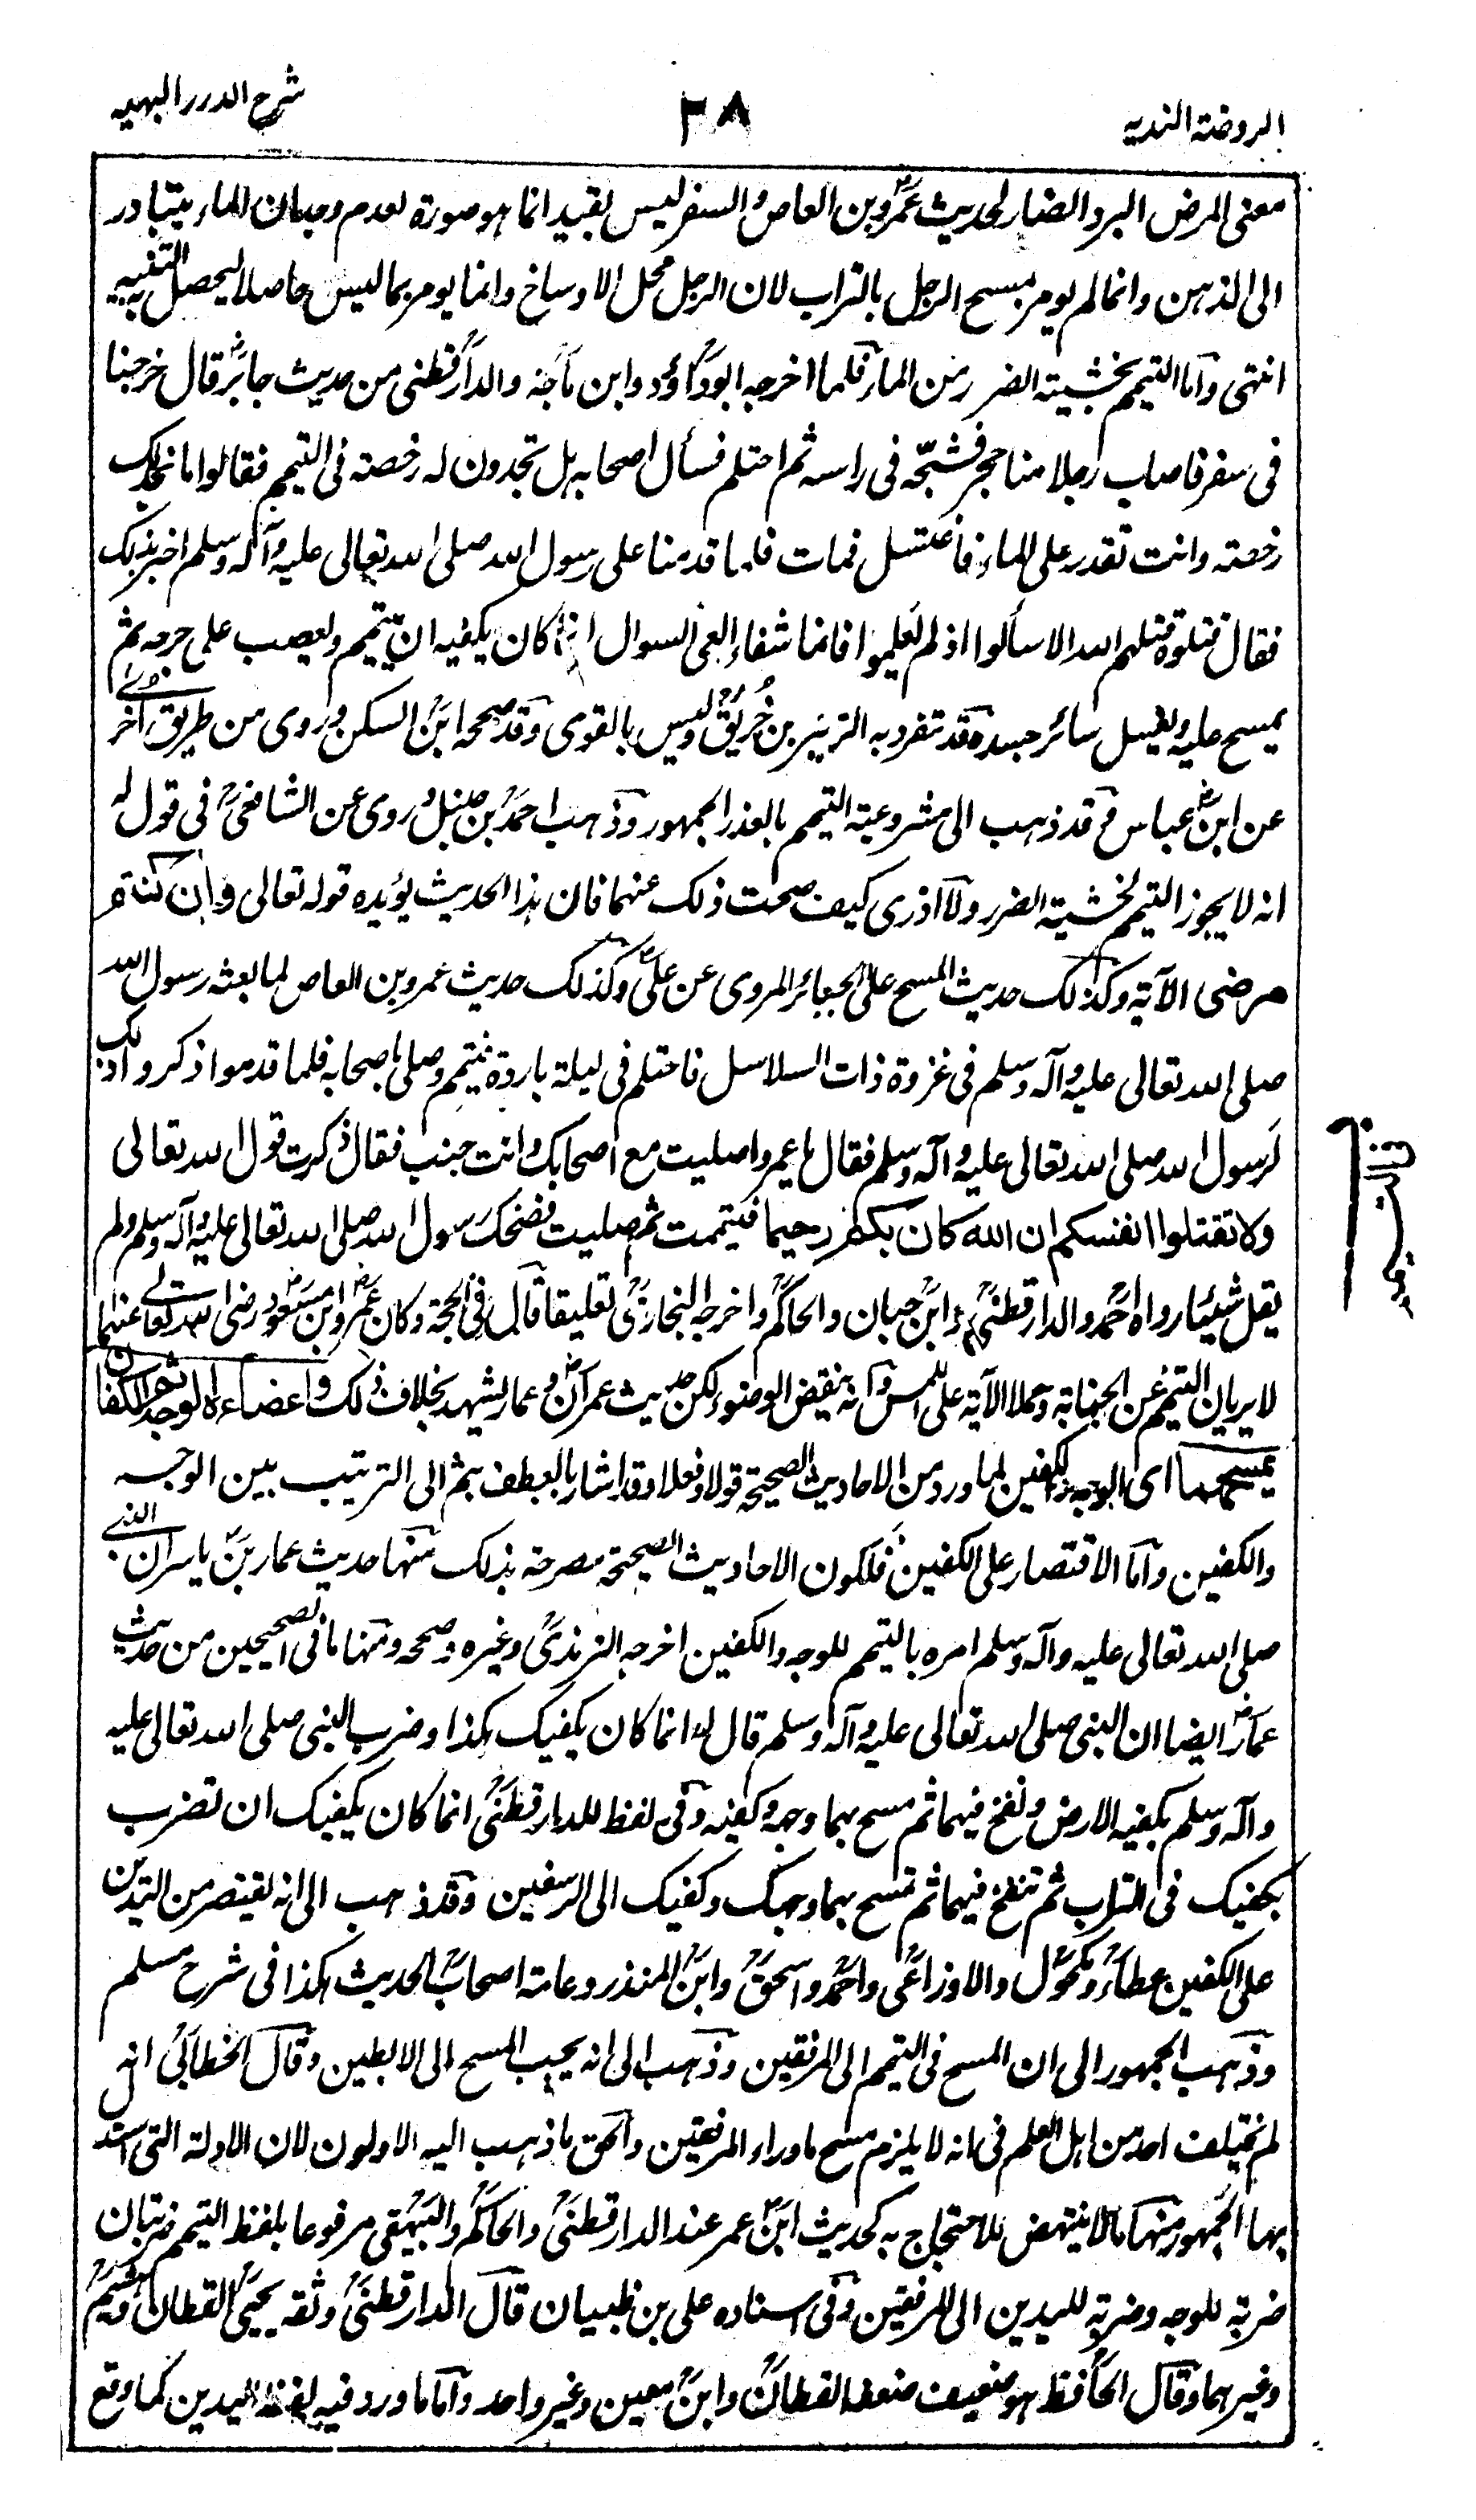 الروضة الندیه
٣٨
شرح الدرر البهیه
معنی المرض البرد الضار لحدیث عمرو بن العاص والسفر لیس بقید انما هو صورة لعدم وجدان الماء یتبادر
الی الذهن وانما لم یومر بمسح الرجل بالتراب لان الرجل محل الاوساخ وانما یومر بما لیس حاصلا لیحصل به التنبیه
انتهی واما التیمم بخشیة الضرر من الماء فلما اخرجه ابوداؤد وابن ماجة والدارقطنی من حدیث جابر قال خرجنا
فی سفر فاصاب رجلا منا حجر فشجّه فی راسه ثم احتلم فسأل اصحابه هل تجدون له رخصة فی التیمم فقالوا ما نجد لک
رخصة وانت تقدر علی الماء فاغتسل فمات فلما قدمنا علی رسول الله صلی الله تعالی علیه وآله وسلم اخبر بذلک
فقال قتلوه قتلهم الله الا سألوا اذ لم یعلموا فانما شفاء العی السوال انما کان یکفیه ان یتیمم ویعصب علی جرحه ثم
یمسح علیه ویغسل سائر جسده وقد تفرد به الزبیر بن خُرَیْق ولیس بالقوی وقد صححه ابن السکن وروی من طریق اخری
عن ابن عباس وقد ذهب الی مشروعیة التیمم بالعذر الجمهور وذهب احمد بن حنبل وروی عن الشافعی فی قول له
انه لا یجوز التیمم لخشیة الضرر ولا ادری کیف صحت ذلک عنهما فان هذا الحدیث یؤیده قوله تعالی وان کنتم
مرضی الآیة وکذلک حدیث المسح علی الجبائر المروی عن علی وکذلک حدیث عمرو بن العاص لما بعثه رسول الله
صلی الله تعالی علیه وآله وسلم فی غزوة ذات السلاسل فاحتلم فی لیلة باردة فتیمم وصلی باصحابه فلما قدموا ذکروا ذلک
لرسول الله صلی الله تعالی علیه وآله وسلم فقال یا عمرو اصلیت مع اصحابک وانت جنب فقال ذکرت قول الله تعالی
ولا تقتلوا انفسکم ان الله کان بکم رحیما فتیممت ثم صلیت فضحک رسول الله صلی الله تعالی علیه وآله وسلم ولم
یقل شیئا رواه احمد والدارقطنی وابن حبان والحاکم واخرجه البخاری تعلیقا قال فی الحجة وکان عمر وابن مسعود رضی الله تعالی عنهما
لا یریان التیمم عن الجنابة وحملا الآیة علی اللمس وانه ینقض الوضوء لکن حدیث عمران وعمار یشهد بخلاف ذلک واعضاءه الوجه ثم الکفان
یمسحهما ای الوجه والکفین لما ورد من الاحادیث الصحیحة قولا وفعلا وقد اشار بالعطف بثم الی الترتیب بین الوجه
والکفین واما الاقتصار علی الکفین فلکون الاحادیث الصحیحة مصرحة بذلک منها حدیث عمار بن یاسر ان النبی
صلی الله تعالی علیه وآله وسلم امره بالتیمم للوجه والکفین اخرجه الترمذی وغیره وصححه ومنها ما فی الصحیحین من حدیث
عمار ایضا ان النبی صلی الله تعالی علیه وآله وسلم قال له انما کان یکفیک هکذا وضرب النبی صلی الله تعالی علیه
وآله وسلم بکفیه الارض ونفخ فیهما ثم مسح بهما وجهه وکفیه وفی لفظ للدارقطنی انما کان یکفیک ان تضرب
بکفیک فی التراب ثم تنفخ فیهما ثم تمسح بهما وجهک وکفیک الی الرسغین وقد ذهب الی انه یقتصر من الیدین
علی الکفین عطاء ومکحول والاوزاعی واحمد واسحق وابن المنذر وعامة اصحاب الحدیث هکذا فی شرح مسلم
وذهب الجمهور الی ان المسح فی التیمم الی المرفقین وذهب الی انه یجب المسح الی الابطین وقال الخطابی انه
لم یختلف احد من اهل العلم فی انه لا یلزم مسح ما وراء المرفقین والحق ما ذهب الیه الاولون لان الادلة التی استدل
بها الجمهور منها ما لا ینتهض للاحتجاج به کحدیث ابن عمر عند الدارقطنی والحاکم والبیهقی مرفوعا بلفظ التیمم ضربتان
ضربة للوجه وضربة للیدین الی المرفقین وفی اسناده علی بن ظبیان قال الدارقطنی وثقه یحیی القطان وهشیم
وغیرهما وقال الحافظ هو ضعیف ضعفه القطان وابن معین وغیر واحد واما ما ورد فیه لفظ الیدین کما وقع